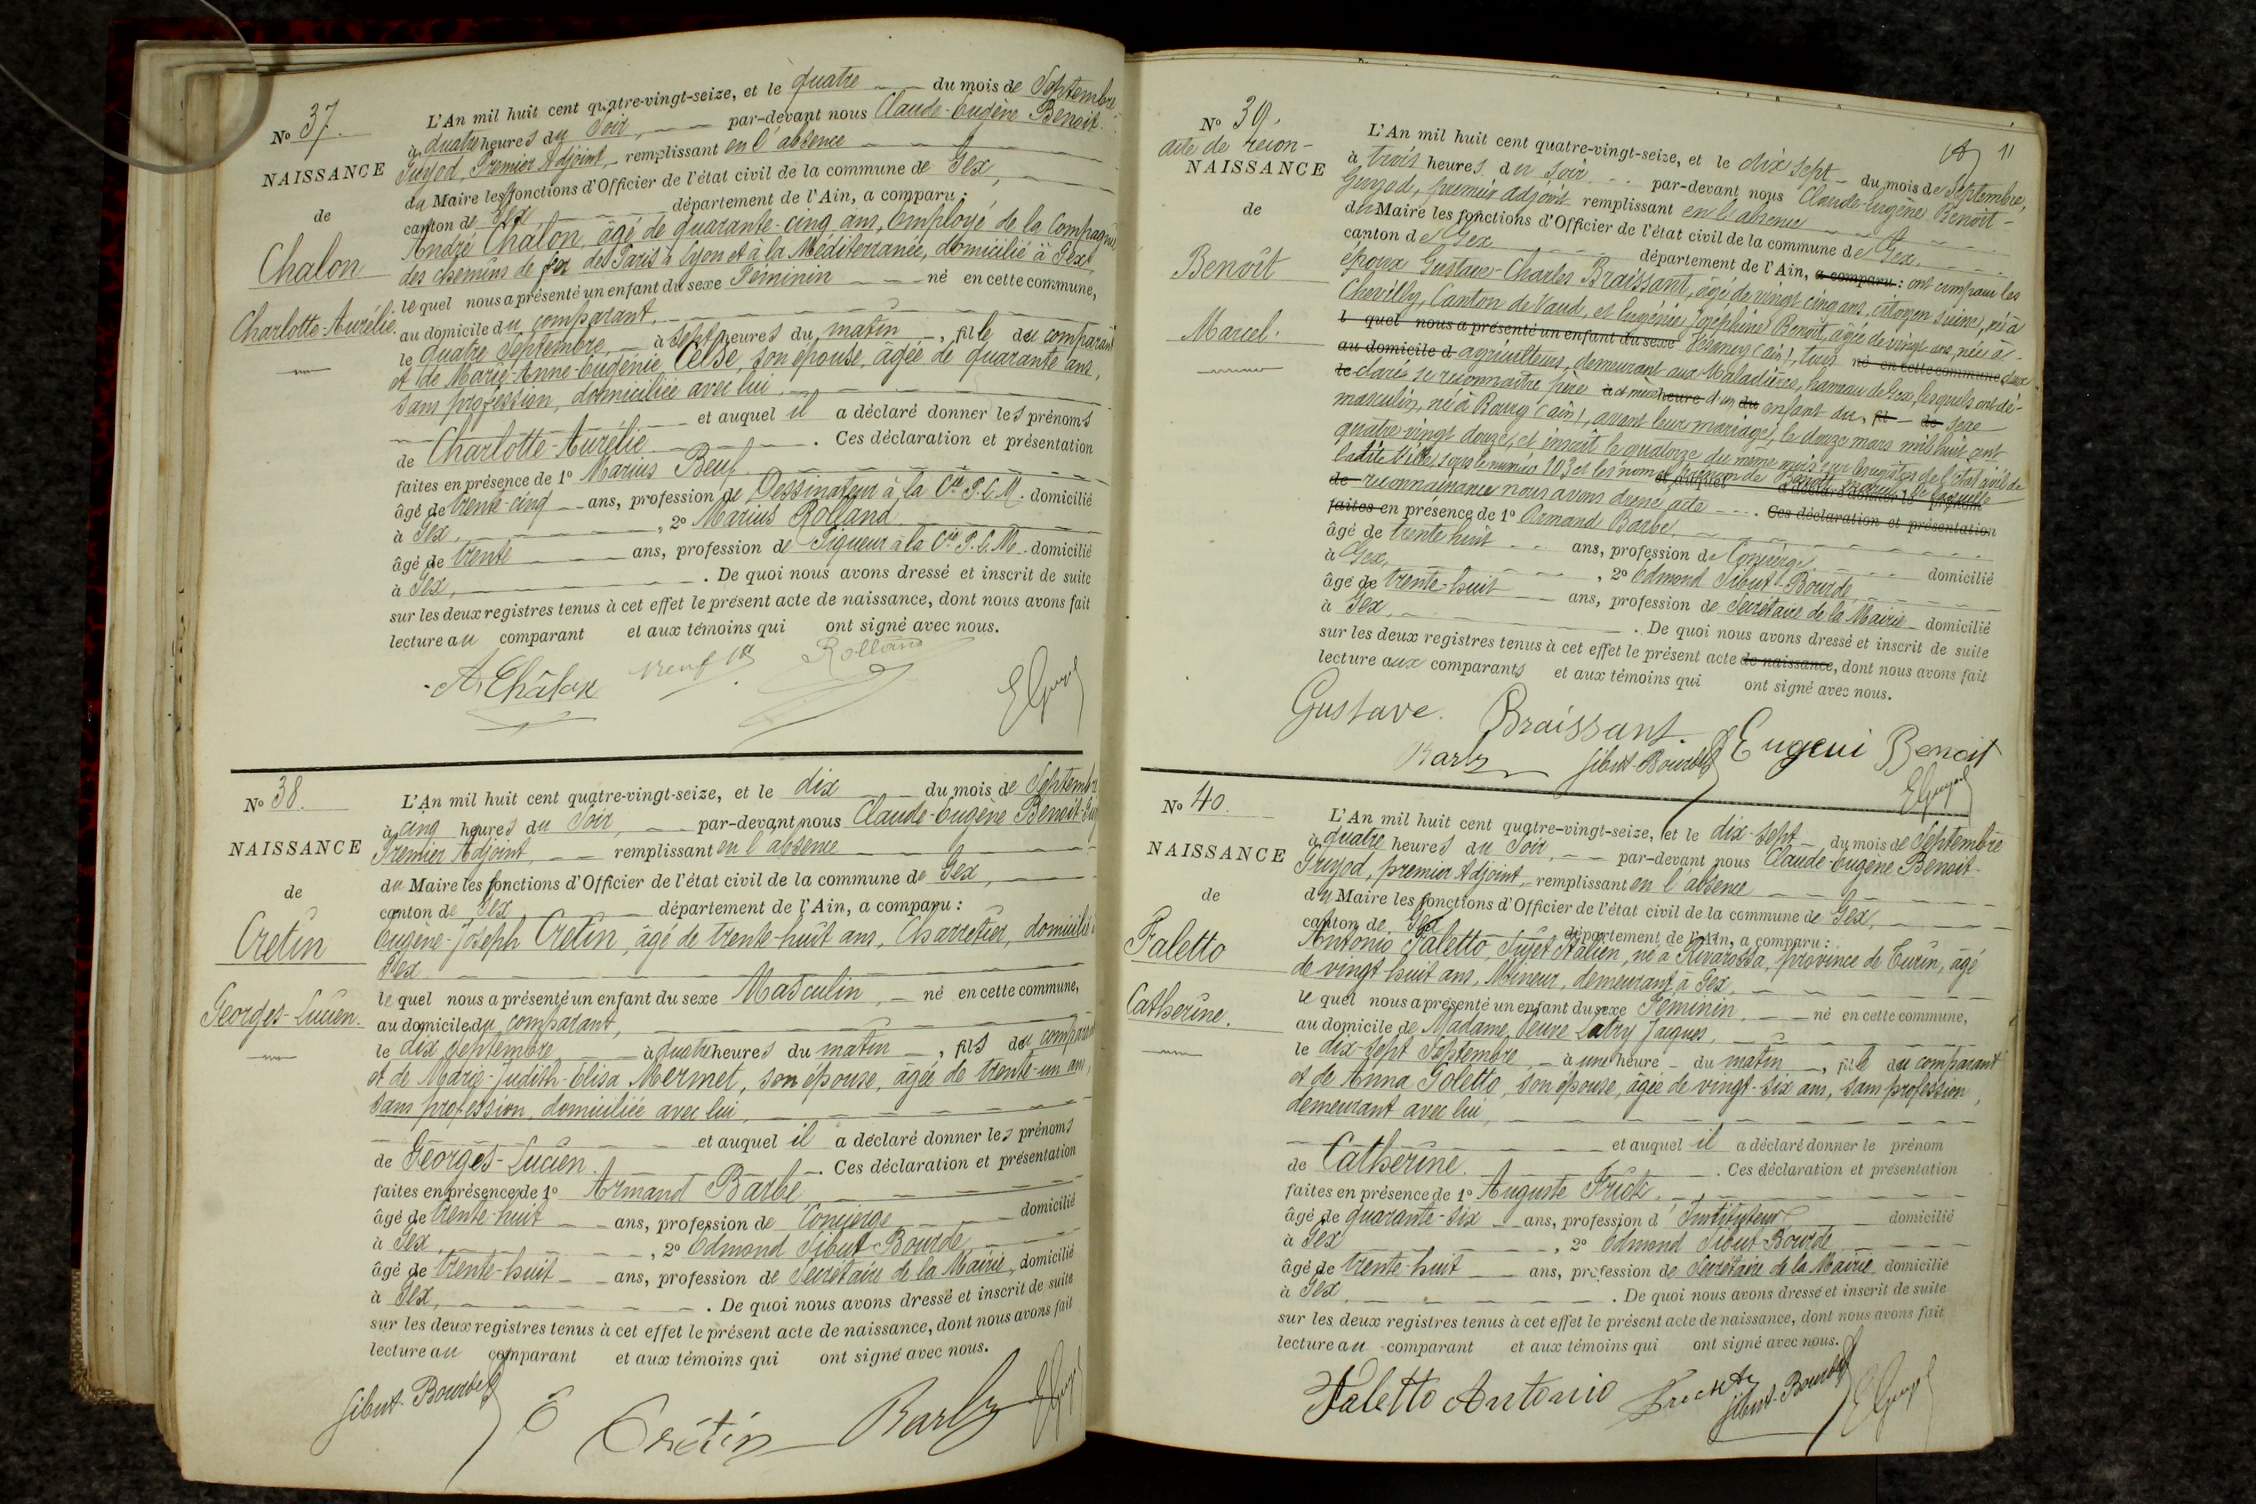 N° 37.
NAISSANCE
de
Chalon
Charlotte-Aurélie.
L'An mil huit cent quatre-vingt-seize, et le quatre du mois de Septembre
à quatre heures du Soir, par-devant nous Claude-Eugène Benoit-
Guyod, Premier Adjoint, remplissant en l'absence
du Maire les fonctions d'Officier de l'état civil de la commune de Gex,
canton de Gex département de l'Ain, a comparu :
André Châlon, âgé de quarante-cinq ans, Employé de la Compagnie
des chemins de fer de Paris à Lyon et à la Méditerranée, domicilié à Gex,
lequel nous a présenté un enfant du sexe Féminin né en cette commune,
au domicile du comparant,
le quatre Septembre, à sept heures du matin, fille du comparant
et de Marie-Anne-Eugénie Celse, son épouse, âgée de quarante ans,
sans profession, domiciliée avec lui,
et auquel il a déclaré donner les prénoms
de Charlotte-Aurélie. Ces déclaration et présentation
faites en présence de 1° Marius Beuf
âgé de trente-cinq ans, profession de Dessinateur à la Cie P.L.M. domicilié
à Gex, 2° Marius Rolland
âgé de trente ans, profession de Piqueur à la Cie P.L.M. domicilié
à Gex, . De quoi nous avons dressé et inscrit de suite
sur les deux registres tenus à cet effet le présent acte de naissance, dont nous avons fait
lecture au comparant et aux témoins qui ont signé avec nous.
A. Châlon Beuf Rolland EGuyod
N° 38.
NAISSANCE
de
Cretin
Georges-Lucien.
L'An mil huit cent quatre-vingt-seize, et le dix du mois de Septembre
à cinq heures du Soir, par-devant nous Claude-Eugène Benoit-Guy
Premier Adjoint, remplissant en l'absence
du Maire les fonctions d'Officier de l'état civil de la commune de Gex,
canton de Gex département de l'Ain, a comparu :
Eugène-Joseph Cretin, âgé de trente-huit ans, Charretier, domicilié à
Gex
lequel nous a présenté un enfant du sexe Masculin, né en cette commune,
au domicile du comparant,
le dix septembre à quatre heures du matin, fils du comparant
et de Marie-Judith-Elisa Mermet, son épouse, âgée de trente-un ans,
sans profession, domiciliée avec lui,
et auquel il a déclaré donner les prénoms
de Georges-Lucien. Ces déclaration et présentation
faites en présence de 1° Armand Barbe
âgé de trente-huit ans, profession de Concierge domicilié
à Gex, 2° Edmond Sibut-Bourde
âgé de trente-huit ans, profession de Secrétaire de la Mairie, domicilié
à Gex, . De quoi nous avons dressé et inscrit de suite
sur les deux registres tenus à cet effet le présent acte de naissance, dont nous avons fait
lecture au comparant et aux témoins qui ont signé avec nous.
Sibut-Bourde E Crétin Barbe EGuyod
11
N° 39.
acte de recon-
NAISSANCE
de
Benoît
Marcel.
L'An mil huit cent quatre-vingt-seize, et le dix sept du mois de Septembre,
à trois heures du soir par-devant nous Claude-Eugène Benoît-
Guyod, premier adjoint remplissant en l'absence
du Maire les fonctions d'Officier de l'état civil de la commune de Gex,
canton de Gex département de l'Ain, a comparu : ont comparu les
époux Gustave Charles Braissant, âgé de vingt cinq ans, citoyen suisse, né à
Chevilly, Canton de Vaud, et Eugénie Joséphine Benoît, âgée de vingt ans, née à
l quel nous a présenté un enfant du sexe Fesrnex (Ain), tous né en cette commune deux
au domicile d agriculteurs, demeurant aux Maladières, hameau de Gex, lesquels ont dé-
le clarés se reconnaître père à et mère heure d'un du enfant du, fil de sexe
masculin, né à Bourg (Ain), avant leur mariage, le douze mars mil huit cent
quatre-vingt douze, et inscrit le quatorze du même mois sur les registres de l'état civil de
ladite Ville, sous le numéro 103 et les nom et prénom de Benoît Marcel, de laquelle
de reconnaissance nous avons donné acte . Ces déclaration et présentation
faites en présence de 1° Armand Barbe
âgé de trente huit ans, profession de Concierge domicilié
à Gex, 2° Edmond Sibut-Bourde
âgé de trente-huit ans, profession de Secrétaire de la Mairie domicilié
à Gex, . De quoi nous avons dressé et inscrit de suite
sur les deux registres tenus à cet effet le présent acte de naissance, dont nous avons fait
lecture aux comparants et aux témoins qui ont signé avec nous.
Gustave. Braissant. Eugeni Benoit
Barbe Sibut-Bourde EGuyod
N° 40.
NAISSANCE
de
Faletto
Catherine.
L'An mil huit cent quatre-vingt-seize, et le dix-sept du mois de Septembre
à quatre heures du Soir, par-devant nous Claude-Eugène Benoit-
Guyod, premier Adjoint, remplissant en l'absence
du Maire les fonctions d'Officier de l'état civil de la commune de Gex,
canton de Gex département de l'Ain, a comparu :
Antonio Faletto, Sujet Italien, né à Rivarossa, province de Turin, âgé
de vingt-huit ans, Mineur, demeurant à Gex,
lequel nous a présenté un enfant du sexe Féminin, né en cette commune,
au domicile de Madame Veuve Latry Jacques,
le dix-sept Septembre, à une heure du matin, fille du comparant
et de Anna Goletto, son épouse, âgée de vingt-six ans, sans profession,
demeurant avec lui,
et auquel il a déclaré donner le prénom
de Catherine. Ces déclaration et présentation
faites en présence de 1° Auguste Frick
âgé de quarante-six ans, profession d'Instituteur domicilié
à Gex, 2° Edmond Sibut-Bourde
âgé de trente-huit ans, profession de Secrétaire de la Mairie domicilié
à Gex, . De quoi nous avons dressé et inscrit de suite
sur les deux registres tenus à cet effet le présent acte de naissance, dont nous avons fait
lecture au comparant et aux témoins qui ont signé avec nous.
Faletto Antonio Sibut-Bourde EGuyod